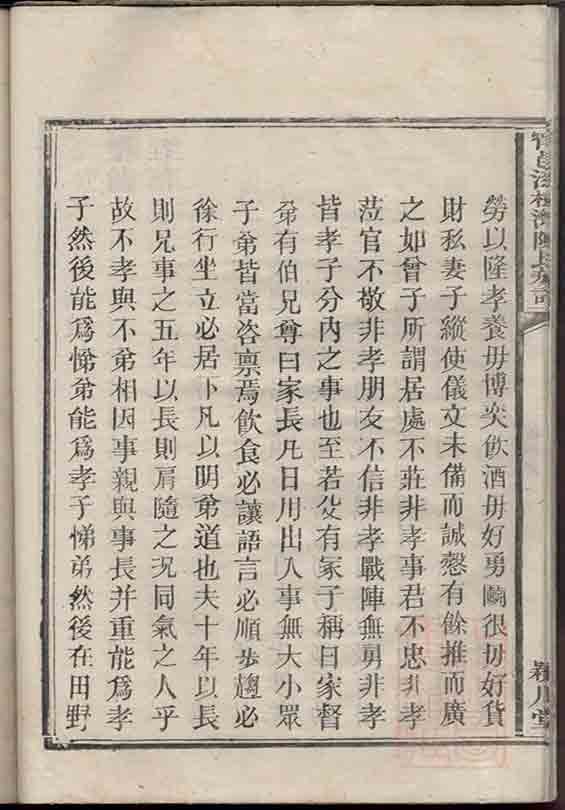 勞以隆孝養毋博奕飲酒毋好勇鬭很毋好貨
財私妻子縱使儀文未備而誠慤有餘推而廣
之如曾子所謂居處不莊非孝事君不忠非孝
蒞官不敬非孝朋友不信非孝戰陣無勇非孝
皆孝子分內之事也至若父有冢子稱曰家督
弟有伯兄尊曰家長凡日用出入事無大小眾
子弟皆當咨稟焉飲食必讓語言必順步趨必
徐行坐立必居下凡以明弟道也夫十年以長
則兄事之五年以長則肩隨之況同氣之人乎
故不孝與不弟相因事親與事長并重能爲孝
子然後能爲悌弟能爲孝子悌弟然後在田野
潁川堂